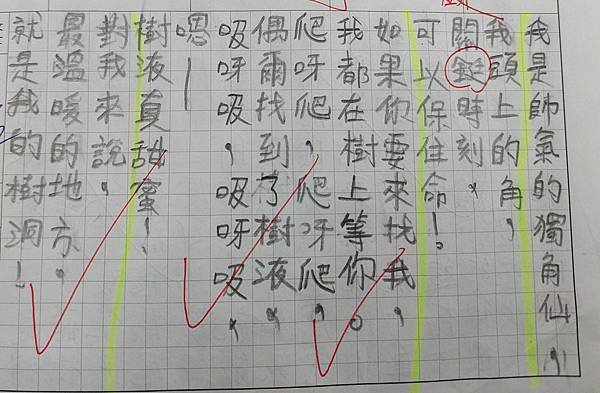 我是帥氣的獨角仙，
我頭上的角，
關鍵時刻，
可以保住命！。
如果你要來找我，
我都在樹上等你。
爬呀爬，爬呀爬，
偶爾找到了樹液，
吸呀吸，吸呀吸，
嗯——
樹液真甜蜜！
對我來說，
最溫暖的地方，
就是我的樹洞！